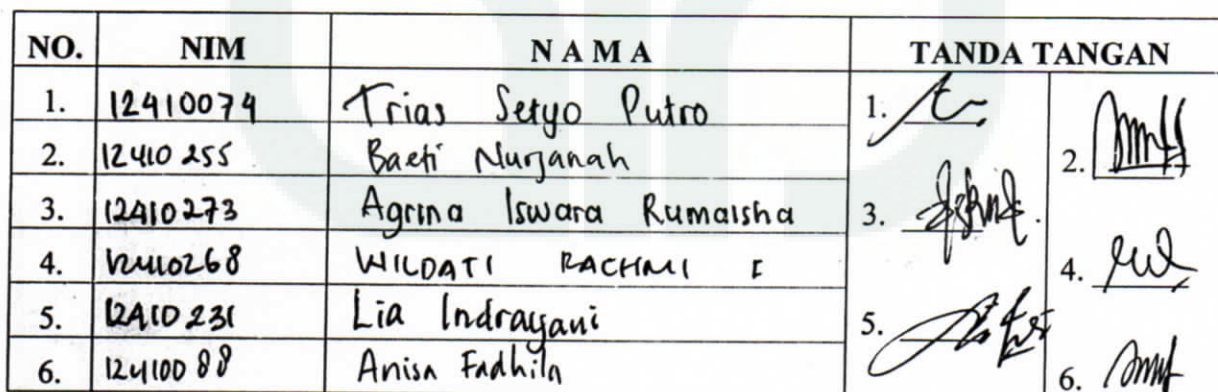 NO. NIM NAMA TANDA TANGAN
1. 12410074 Trias Setyo Putro 1.
2. 12410255 Baeti Nurjanah 2.
3. 12410273 Agrina Iswara Rumaisha 3.
4. 12410268 WILDATI RACHMI E 4.
5. 12410231 Lia Indrayani 5.
6. 12410088 Anisa Fadhila 6.